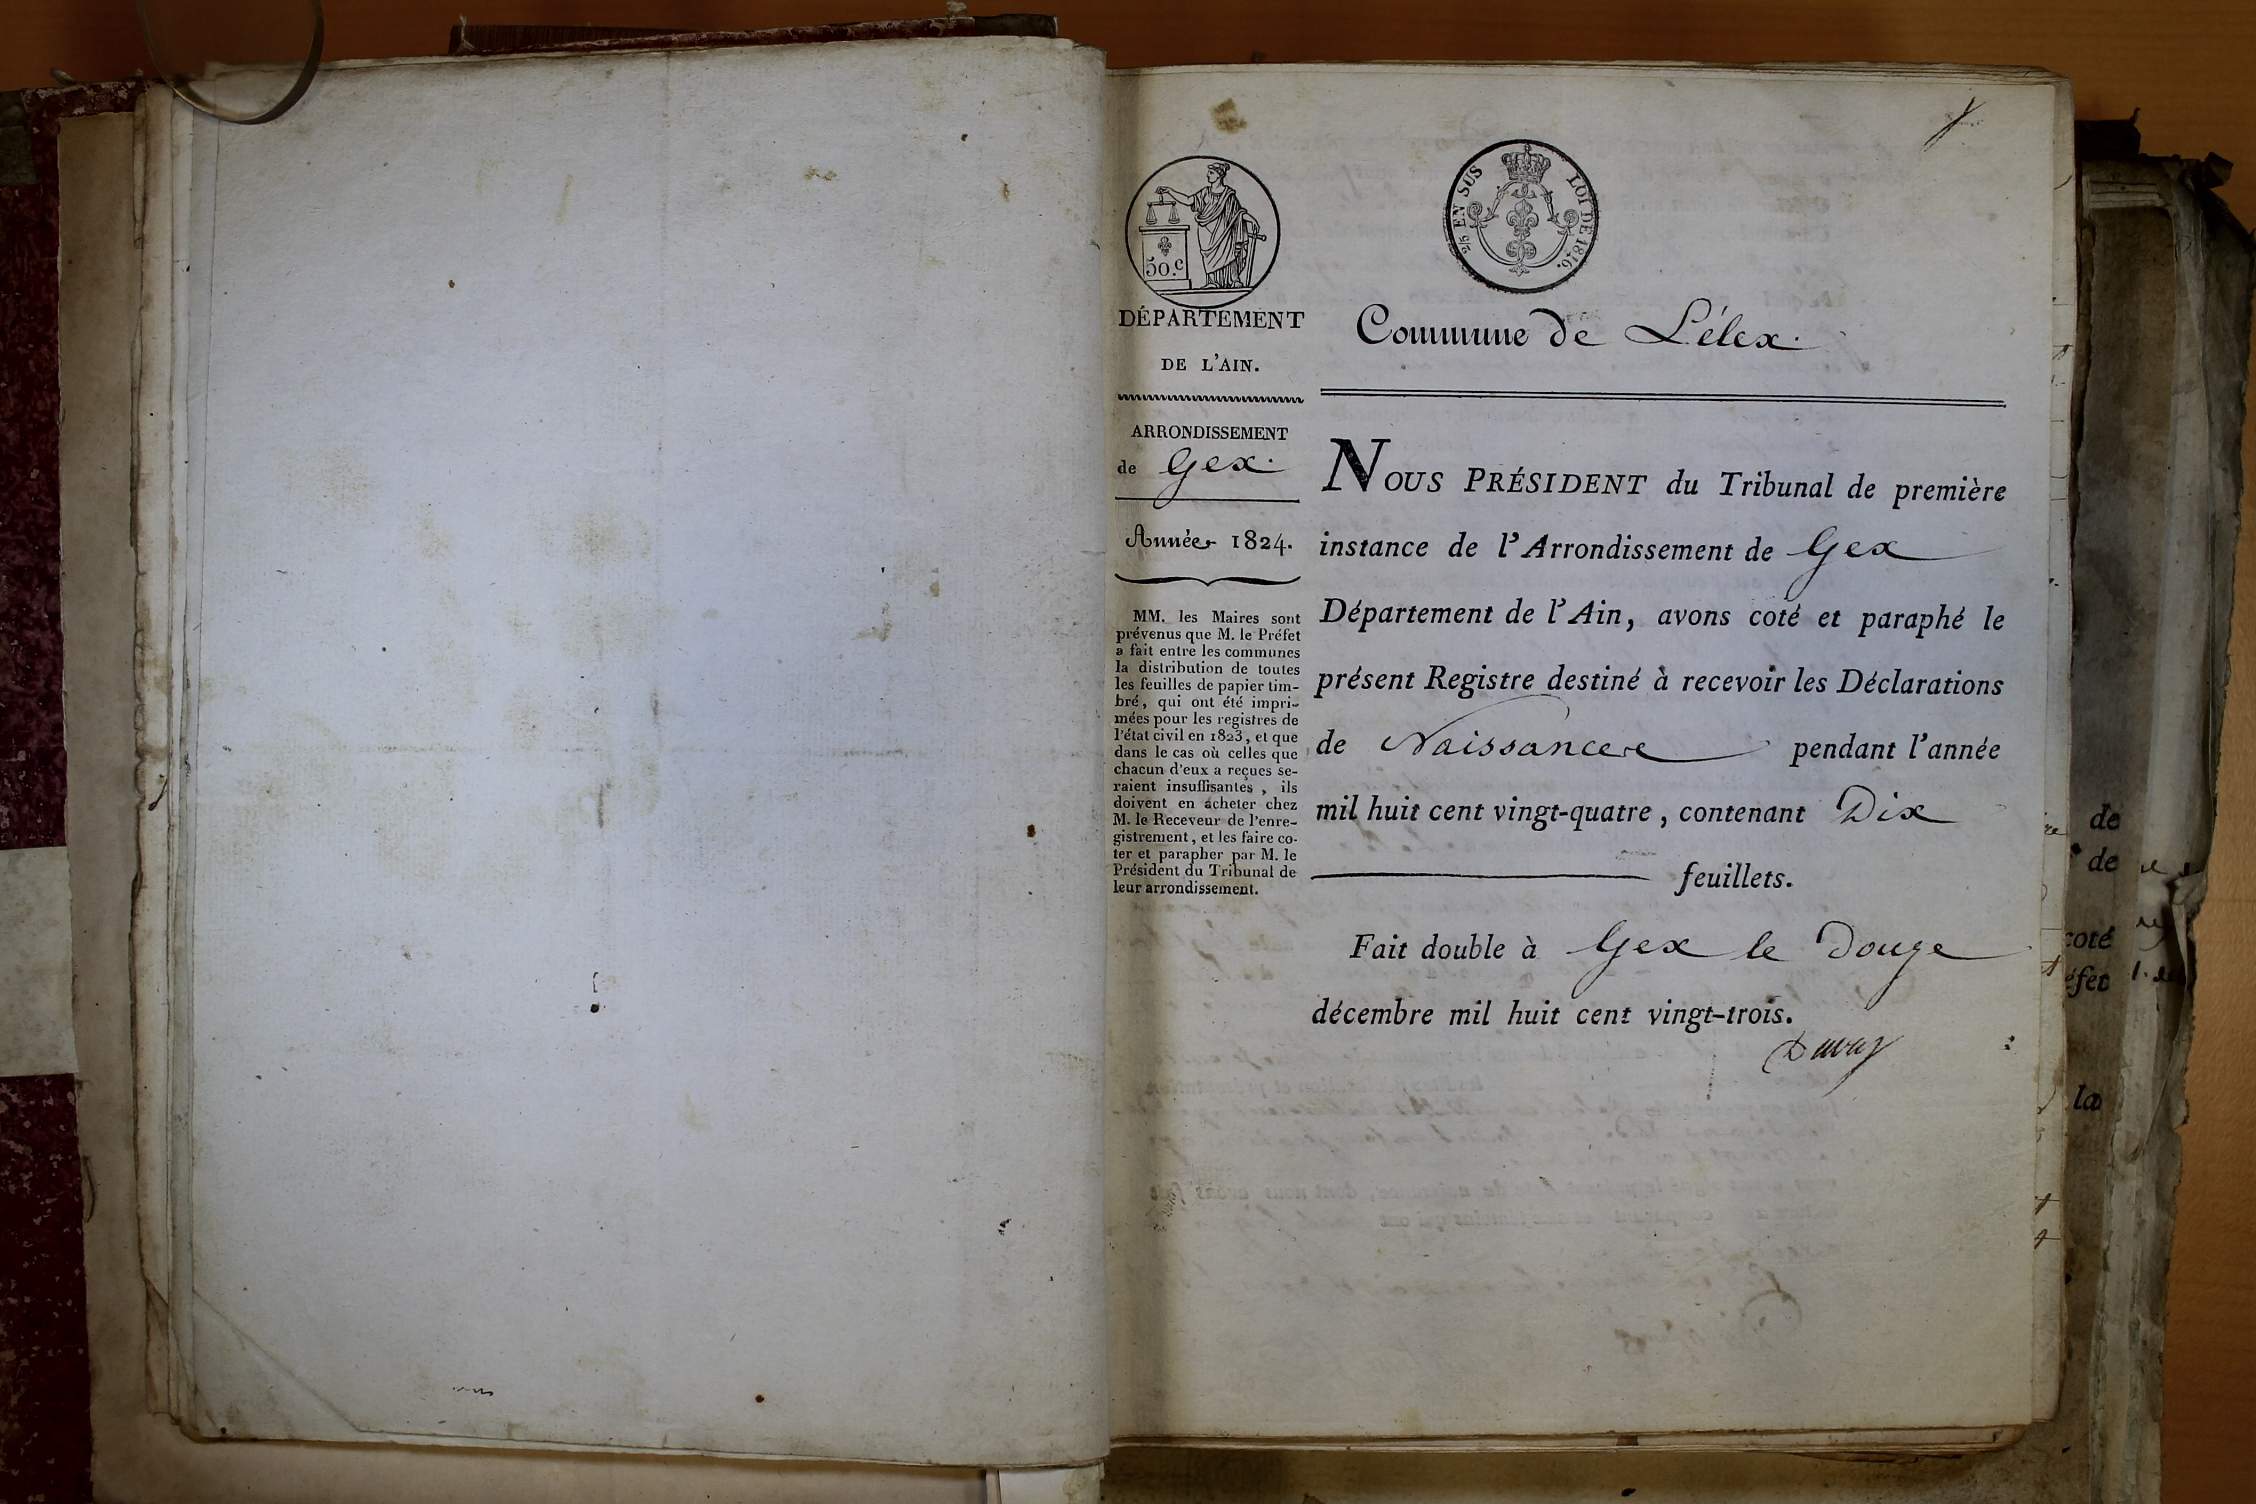 50.c
2/5 EN SUS LOI DE 1816.
DÉPARTEMENT
DE L'AIN.
ARRONDISSEMENT
de Gex.
Année 1824.
MM. les Maires sont
prévenus que M. le Préfet
a fait entre les communes
la distribution de toutes
les feuilles de papier tim-
bré, qui ont été impri-
mées pour les registres de
l'état civil en 1823, et que
dans le cas où celles que
chacun d'eux a reçues se-
raient insuffisantes, ils
doivent en acheter chez
M. le Receveur de l'enre-
gistrement, et les faire co-
ter et parapher par M. le
Président du Tribunal de
leur arrondissement.
Commune de Lélex.
NOUS PRÉSIDENT du Tribunal de première
instance de l'Arrondissement de Gex
Département de l'Ain, avons coté et paraphé le
présent Registre destiné à recevoir les Déclarations
de Naissance pendant l'année
mil huit cent vingt-quatre, contenant Dix
feuillets.
Fait double à Gex le Douze
décembre mil huit cent vingt-trois.
de
de
coté
la